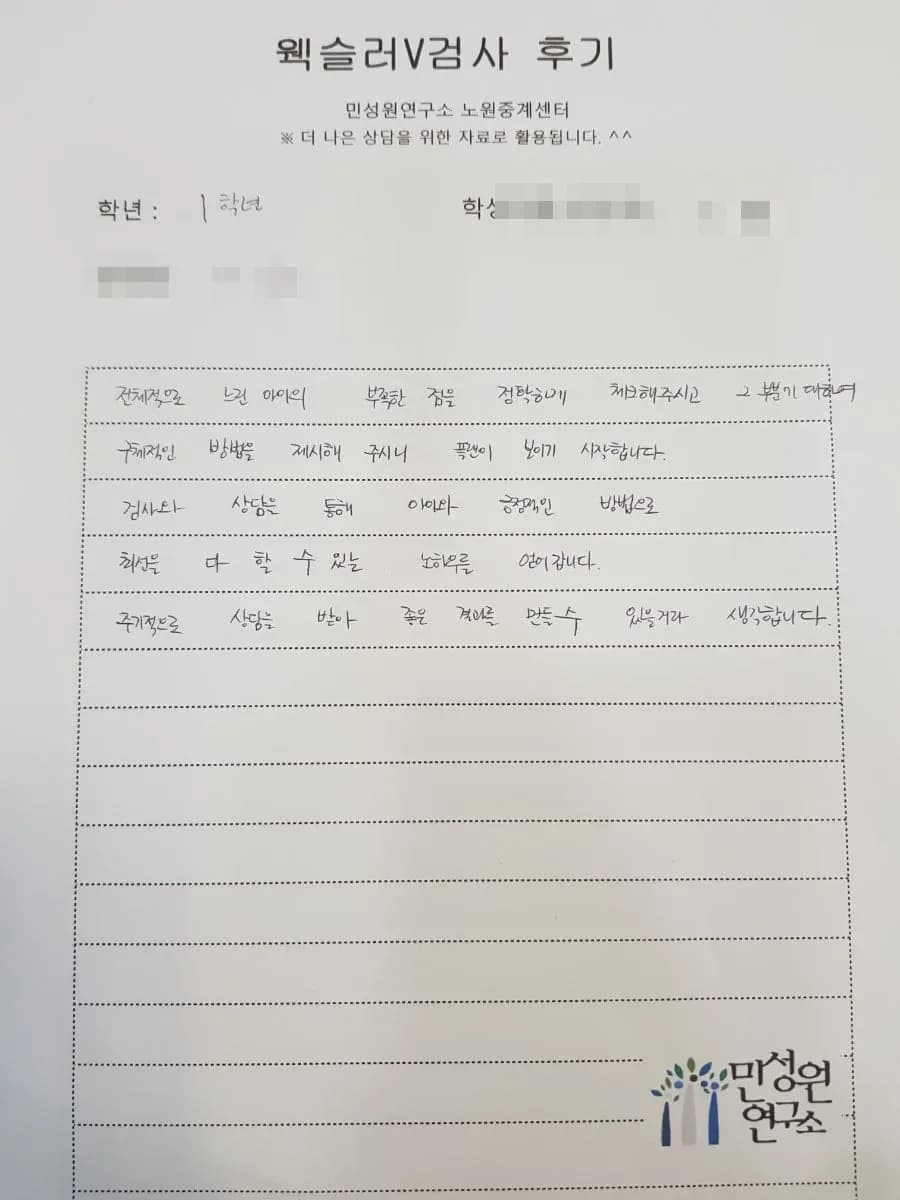 웩슬러V검사 후기
민성원연구소 노원중계센터
※ 더 나은 상담을 위한 자료로 활용됩니다. ^^
학년 : 1학년 학생
전체적으로 느린 아이의 부족한 점을 정확하게 체크해주시고 그 부분에 대하여
구체적인 방법을 제시해 주시니 플랜이 보이기 시작합니다.
검사와 상담을 통해 아이와 긍정적인 방법으로
최선을 다 할 수 있는 노하우를 얻어갑니다.
주기적으로 상담을 받아 좋은 결과를 만들수 있을거라 생각합니다.
민성원
연구소